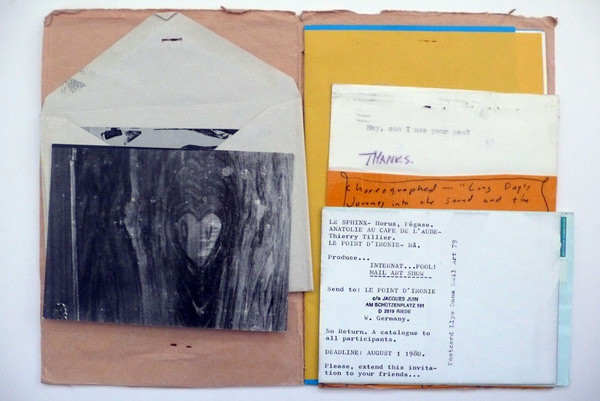 Hey, can I use your pen?
THANKS.
Choreographed — "Long Day's
Journey into the sound and the
LE SPHINX- Horus, Pégase.
ANATOLIE AU CAFE DE L'AUBE-
Thierry Tillier.
LE POINT D'IRONIE- RÂ.
Produce...
INTERNAT...FOOL!
MAIL ART SHOW
Send to: LE POINT D'IRONIE
c/o JACQUES JUIN
AM SCHÜTZENPLATZ 101
D 2815 RIEDE
W. Germany.
No Return. A catalogue to
all participants.
DEADLINE: AUGUST 1 1980.
Please, extend this invita-
tion to your friends...
Postcard Llys Dana Mail Art 79